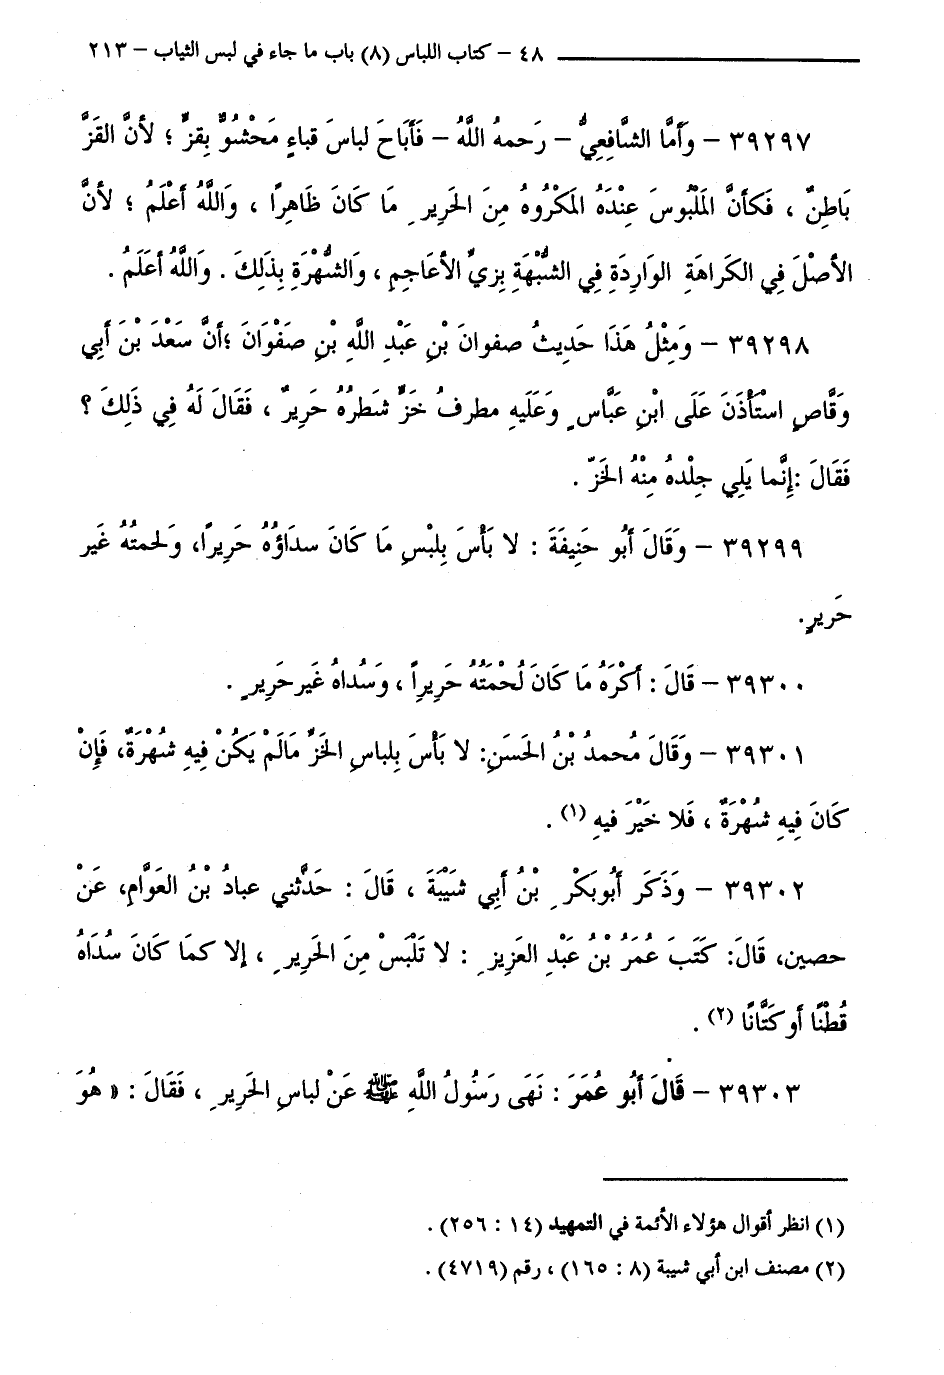 ٤٨ - كتاب اللباس (٨) باب ما جاء في لبس الثياب - ٢١٣
٣٩٢٩٧ - وَأَمَّا الشَّافِعِيُّ - رَحمهُ اللَّهُ - فَأَبَاحَ لباسَ قباءٍ مَحْشُوٍّ بِقزٍّ ؛ لأنَّ القَزَّ
بَاطِنٌ ، فَكأنَّ المَلْبُوسَ عِنْدَهُ المَكْرُوهُ مِنَ الحَريرِ مَا كَانَ ظَاهِراً ، وَاللَّهُ أعْلَمُ ؛ لأنَّ
الأصْلَ فِي الكَراهَةِ الوَارِدَةِ فِي الشُّبْهَةِ بِزيِّ الأعَاجِمِ ، وَالشُّهْرَةِ بِذَلِكَ . وَاللَّهُ أعَلَمُ .
٣٩٢٩٨ - وَمِثْلُ هَذَا حَدِيثُ صفوانَ بْنِ عَبْدِ اللَّهِ بْنِ صَفْوَانَ ؛أنَّ سَعْدَ بْنَ أبِي
وَقَّاصٍ اسْتَأْذَنَ عَلَى ابْنِ عَبَّاسٍ وَعَلَيهِ مطرفُ خَزٍّ شَطرُهُ حَريرٌ ، فَقَالَ لَهُ فِي ذَلِكَ ؟
فَقَالَ :إِنَّما يَلِي جِلْدهُ مِنْهُ الخَزّ .
٣٩٢٩٩ - وَقَالَ أبُو حَنِيفَةَ : لا بَأْسَ بِلبْسِ مَا كَانَ سداؤُهُ حَرِيراً، وَلحمتُهُ غَير
حَريرٍ.
٣٩٣٠٠ - قَالَ : أكْرَهُ مَا كَانَ لُحْمَتُهُ حَرِيراً ، وَسُداهُ غَيرحَريرٍ .
٣٩٣٠١ - وَقَالَ مُحمدُ بْنُ الحَسَنِ: لا بَأْسَ بِلباسِ الخَزِّ مَالَمْ يَكُنْ فِيهِ شُهْرَةٌ، فَإِنْ
كَانَ فِيهِ شُهْرَةٌ ، فَلا خَيْرَ فيهِ (١) .
٣٩٣٠٢ - وَذَكَر أَبُوبَكْرِ بْنُ أبِي شَيْبَةَ ، قَالَ : حَدَّثني عبادُ بْنُ العَوَّامِ، عَنْ
حصين، قَالَ: كَتَبَ عُمَرُ بْنُ عَبْدِ العَزيزِ : لا تَلْبَسْ مِنَ الحَريرِ ، إلا كمَا كَانَ سُدَاهُ
قُطْنًا أوكَتَّانًا (٢) .
٣٩٣٠٣ - قَالَ أبُو عُمَرَ : نَهَى رَسُولُ اللَّهِ ﷺ عَنْ لباسِ الحَريرِ ، فَقَالَ : « هُوَ
(١) انظر أقوال هؤلاء الأئمة في التمهيد (١٤ : ٢٥٦) .
(٢) مصنف ابن أبي شيبة (٨ : ١٦٥) ، رقم (٤٧١٩) .